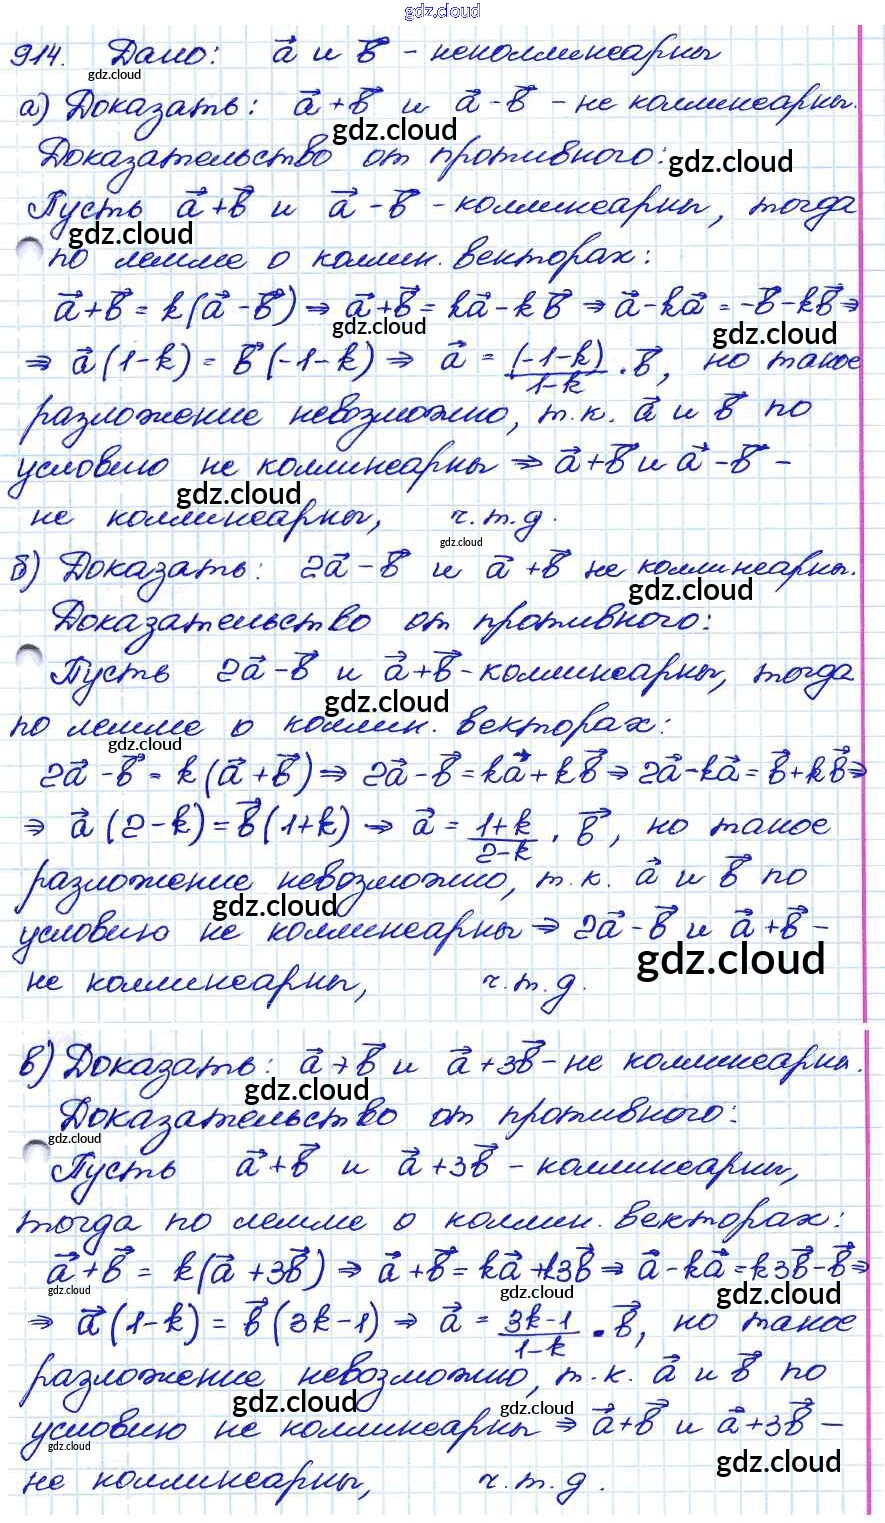 gdz.cloud
914. Дано: a⃗ и b⃗ - неколлинеарны
gdz.cloud
а) Доказать: a⃗+b⃗ и a⃗-b⃗ - не коллинеарны.
gdz.cloud
Доказательство от противного:
gdz.cloud
Пусть a⃗+b⃗ и a⃗-b⃗ - коллинеарны, тогда
gdz.cloud
по лемме о коллин. векторах:
a⃗+b⃗ = k(a⃗-b⃗) ⇒ a⃗+b⃗ = ka⃗-kb⃗ ⇒ a⃗-ka⃗ = -b⃗-kb⃗ ⇒
gdz.cloud
gdz.cloud
⇒ a⃗(1-k) = b⃗(-1-k) ⇒ a⃗ = (-1-k)/1-k · b⃗, но такое
разложение невозможно, т.к. a⃗ и b⃗ по
условию не коллинеарны ⇒ a⃗+b⃗ и a⃗-b⃗ -
gdz.cloud
не коллинеарны, ч.т.д.
gdz.cloud
б) Доказать: 2a⃗-b⃗ и a⃗+b⃗ не коллинеарны.
gdz.cloud
Доказательство от противного:
Пусть 2a⃗-b⃗ и a⃗+b⃗ - коллинеарны, тогда
gdz.cloud
по лемме о коллин. векторах:
gdz.cloud
2a⃗-b⃗ = k(a⃗+b⃗) ⇒ 2a⃗-b⃗ = ka⃗+kb⃗ ⇒ 2a⃗-ka⃗ = b⃗+kb⃗ ⇒
⇒ a⃗(2-k) = b⃗(1+k) ⇒ a⃗ = 1+k/2-k · b⃗, но такое
разложение невозможно, т.к. a⃗ и b⃗ по
gdz.cloud
условию не коллинеарны ⇒ 2a⃗-b⃗ и a⃗+b⃗ -
gdz.cloud
не коллинеарны, ч.т.д.
в) Доказать: a⃗+b⃗ и a⃗+3b⃗ - не коллинеарны.
gdz.cloud
Доказательство от противного:
gdz.cloud
Пусть a⃗+b⃗ и a⃗+3b⃗ - коллинеарны,
тогда по лемме о коллин. векторах:
a⃗+b⃗ = k(a⃗+3b⃗) ⇒ a⃗+b⃗ = ka⃗+k3b⃗ ⇒ a⃗-ka⃗ = k3b⃗-b⃗ ⇒
gdz.cloud
gdz.cloud
gdz.cloud
⇒ a⃗(1-k) = b⃗(3k-1) ⇒ a⃗ = 3k-1/1-k · b⃗, но такое
разложение невозможно, т.к. a⃗ и b⃗ по
gdz.cloud
gdz.cloud
условию не коллинеарны ⇒ a⃗+b⃗ и a⃗+3b⃗ -
gdz.cloud
gdz.cloud
не коллинеарны, ч.т.д.